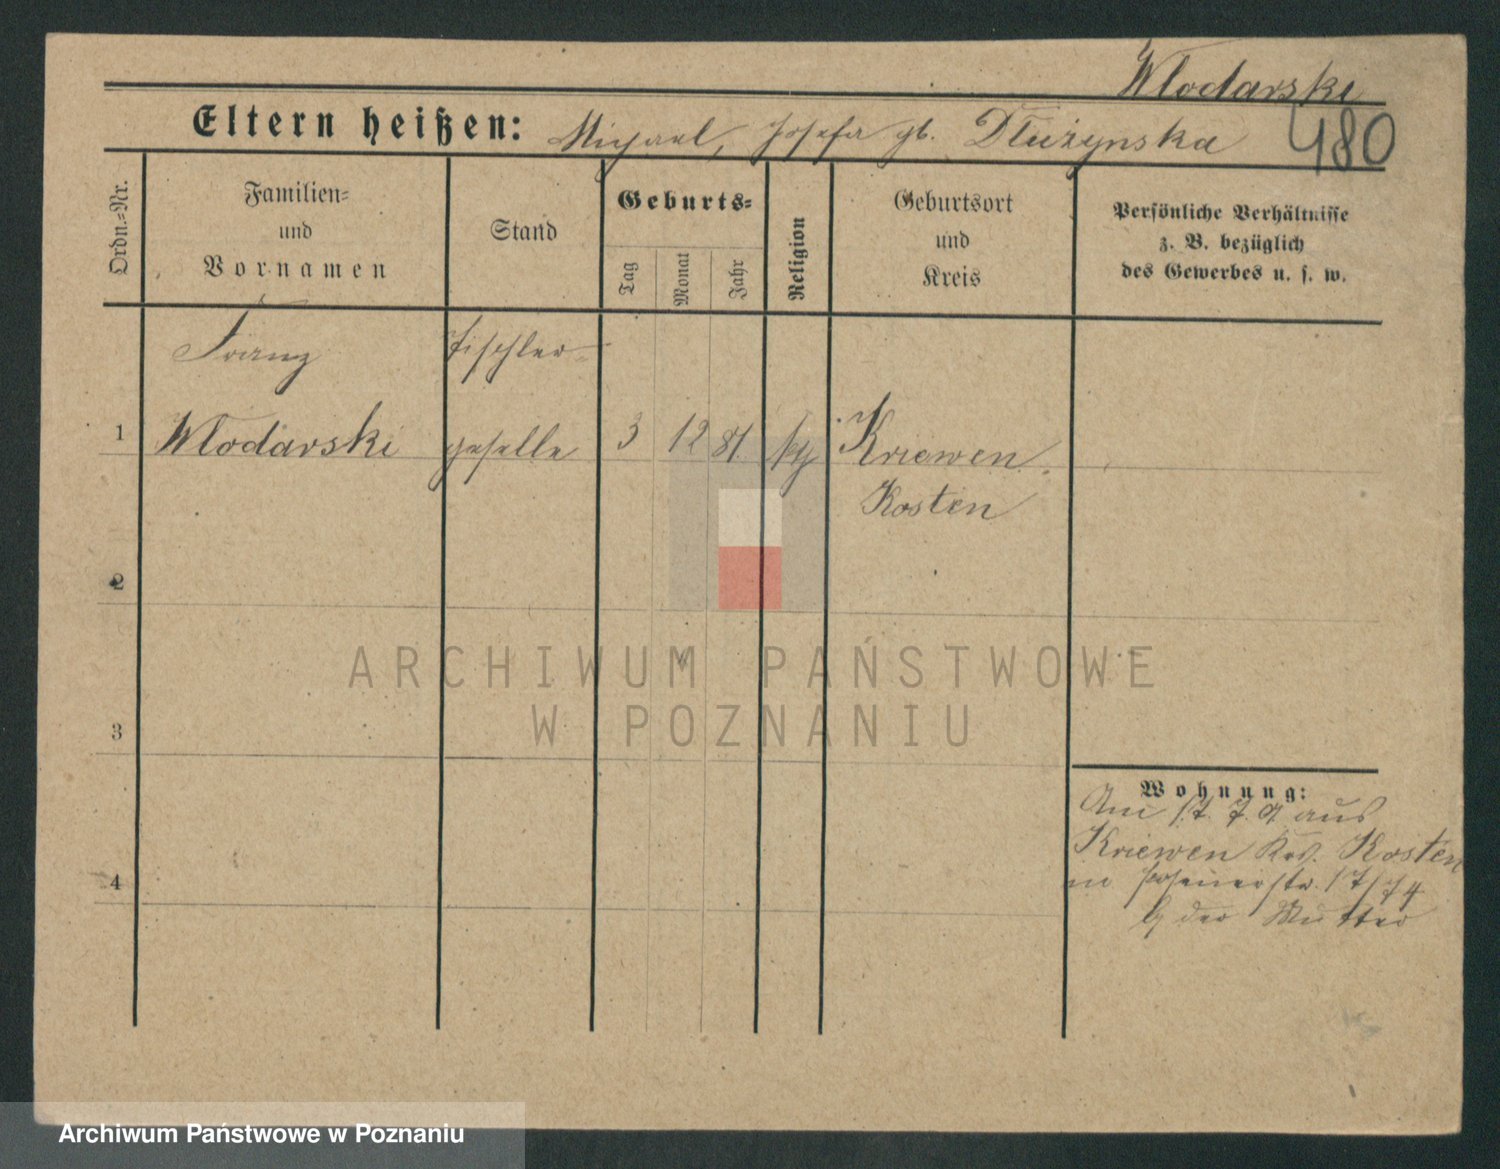 Wlodarski
Eltern heißen: Michael, Josefa gb. Dłużynska 480
Ordn.=Nr.
Familien=
und
Vornamen
Stand
Geburts=
Tag
Monat
Jahr
Religion
Geburtsort
und
Kreis
Persönliche Verhältnisse
z. B. bezüglich
des Gewerbes u. s. w.
Franz Tischler
1 Wlodarski geselle 3 12 81 kth Kriewen
Kosten
2
3
4
Wohnung:
Am 17. 7. 9 aus
Kriewen Krs. Kosten
in Posenerstr. 17/74
b der Mutter
ARCHIWUM PAŃSTWOWE
W POZNANIU
Archiwum Państwowe w Poznaniu